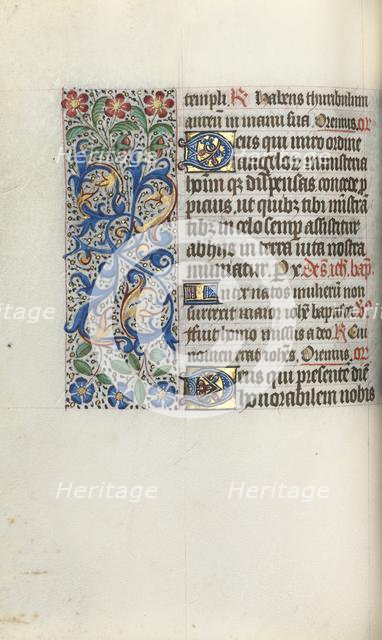 templi. R Habens thuribulum
aureum in manu sua. Oremus. or
Deus qui miro ordine
angelorum ministeria
hominumque dispensas. concede p
picius. ut quibus tibi ministra
tibus in celo semper assistitur
ab hiis in terra vita nostra
muniatur. P x. De s. ioh. bap.
Inter natos mulierum non
surrexit maior iohe baptista.
fuit homo missus a deo R Cui
nomen erat iohes. Oremus. or
Deus qui presente die
honorabilem nobis
Heritage Heritage
Heritage Heritage
Heritage Heritage